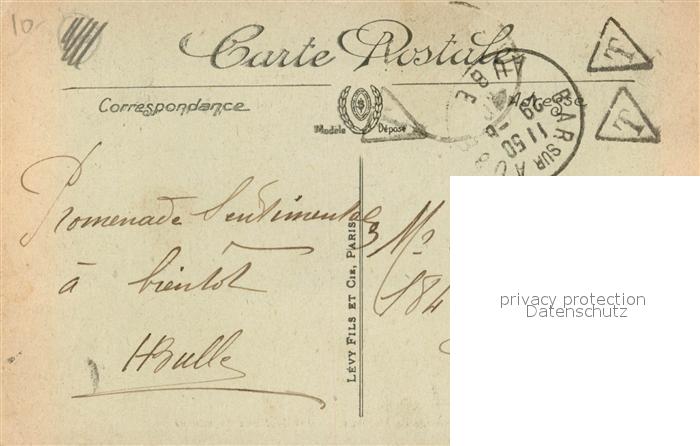 10-
Carte Postale
Correspondance
Adresse
Modèle Déposé
T
T
T
BAR SUR AUBE
11 50
29
AUBE
Promenade Sentimentale
à bientot
HBulle
LÉVY FILS ET CIE, PARIS
Mr
184
privacy protection
Datenschutz